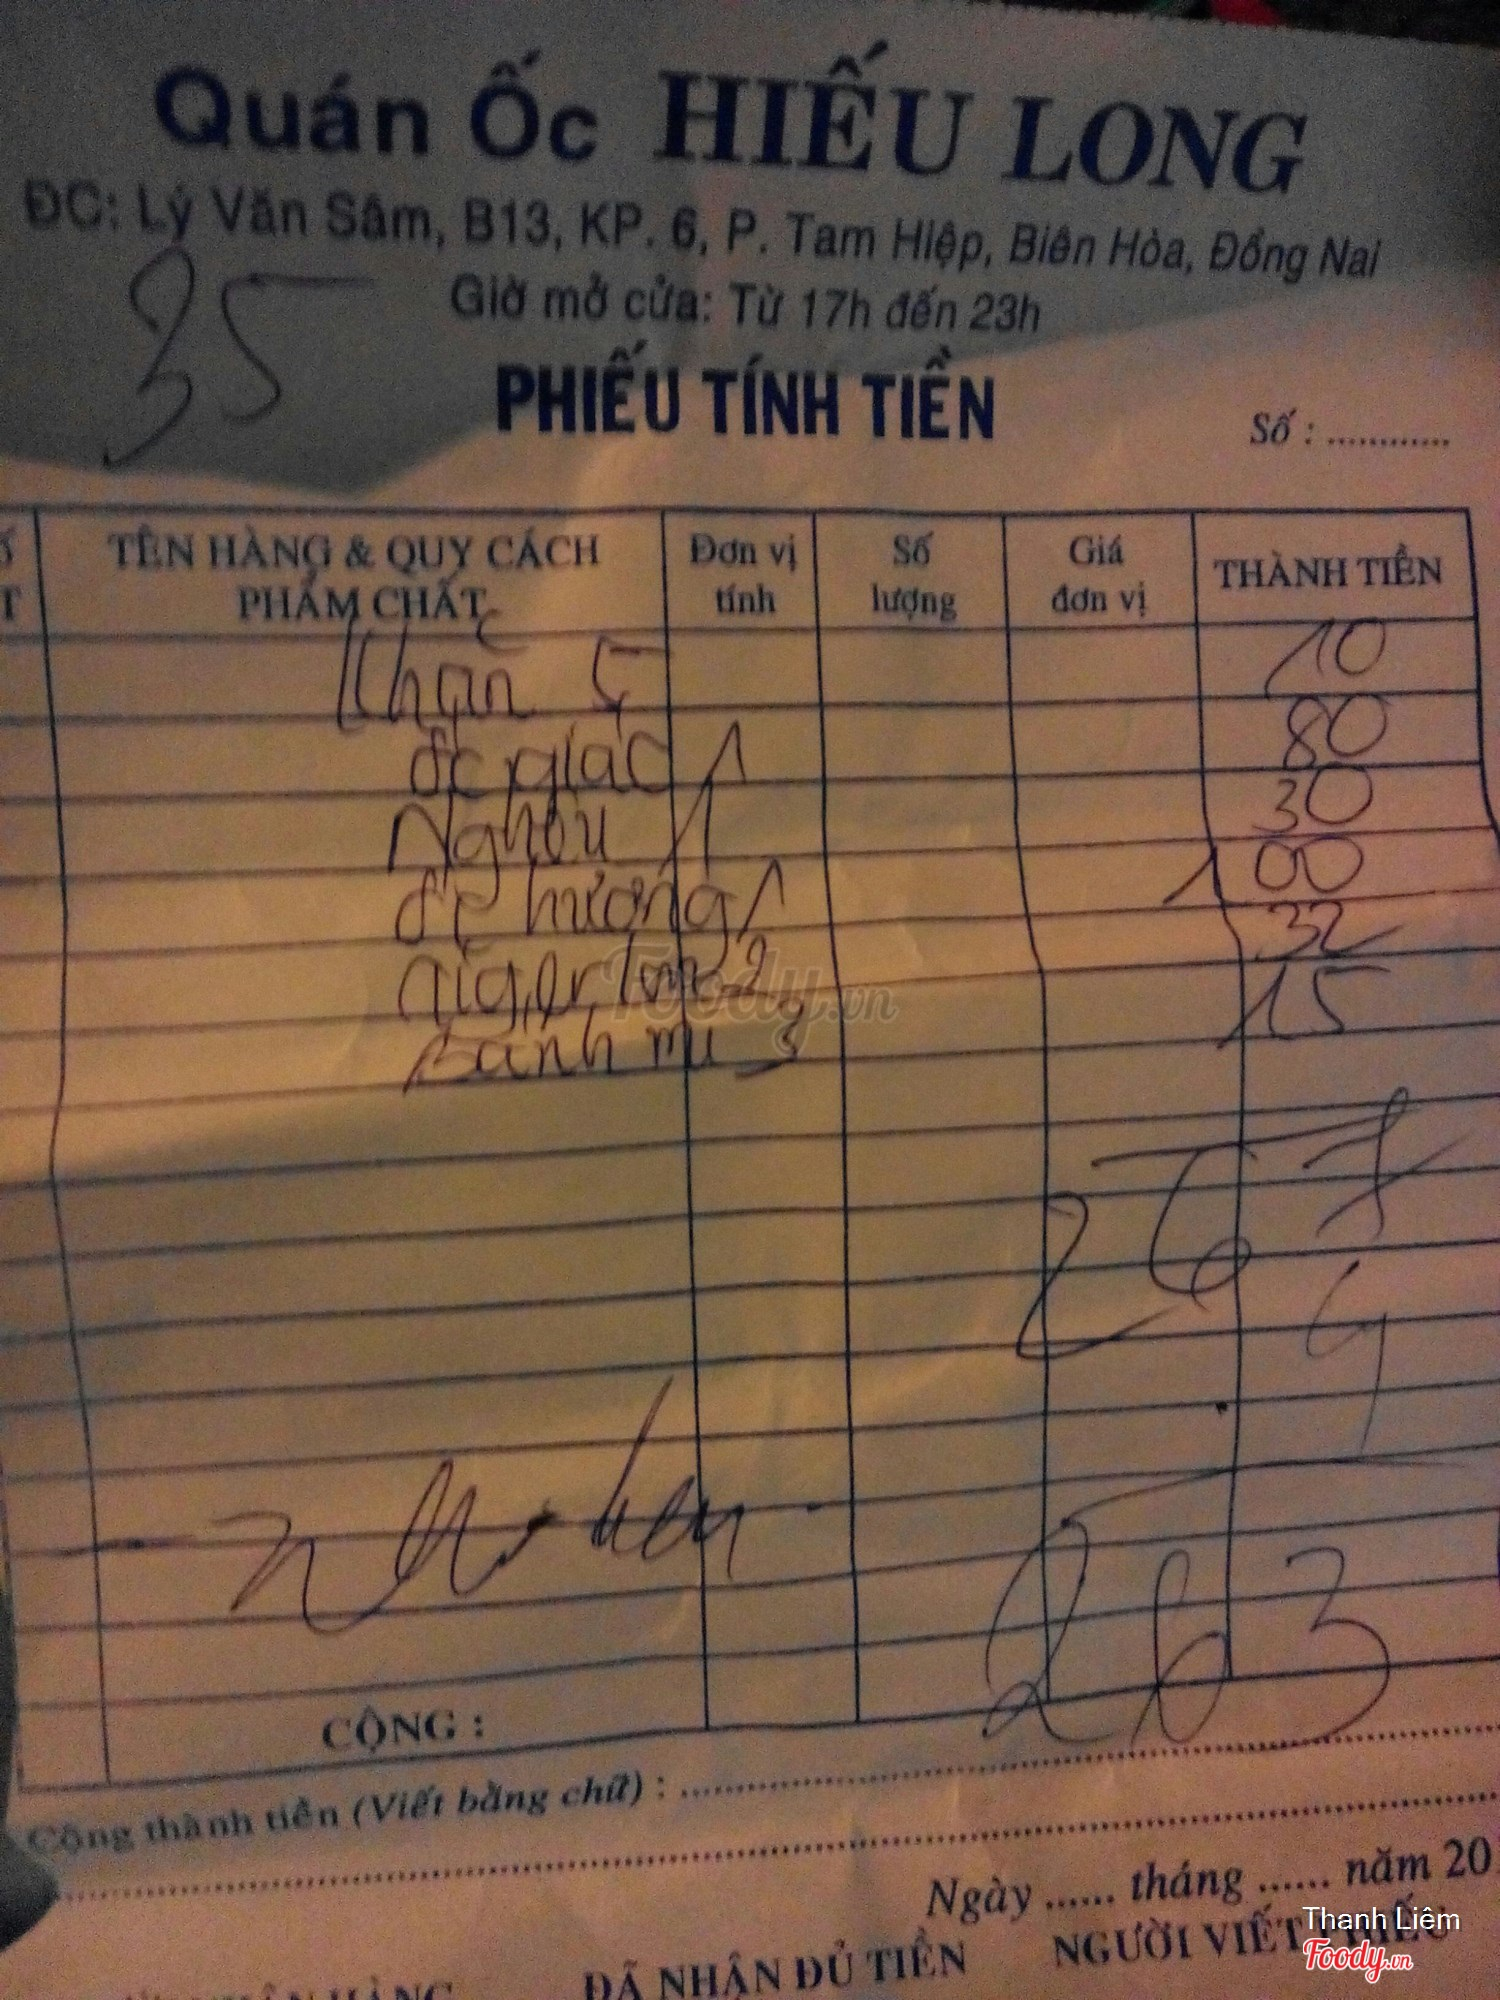 Quán Ốc HIẾU LONG
ĐC: Lý Văn Sâm, B13, KP. 6, P. Tam Hiệp, Biên Hòa, Đồng Nai
35
Giờ mở cửa: Từ 17h đến 23h
PHIẾU TÍNH TIỀN
Số : ............
TÊN HÀNG & QUY CÁCH PHẨM CHẤT Đơn vị tính Số lượng Giá đơn vị THÀNH TIỀN
Khăn 5 10
ốc giác 1 80
Nghêu 1 30
ốc hương 1 100
tiger lon 2 32
Bánh mì 3 15
267
4
263
CỘNG :
Cộng thành tiền (Viết bằng chữ) :
Ngày ...... tháng ...... năm 20
NGƯỜI VIẾT PHIẾU
ĐÃ NHẬN ĐỦ TIỀN
Foody.vn
Thanh Liêm
Foody.vn